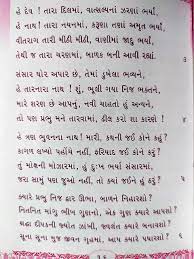 હે દેવ ! તારા દિલમાં, વાત્સલ્યનાં ઝરણાં ભર્યાં,
હે નાથ ! તારા નયનમાં, કરુણા તણાં અમૃત ભર્યાં,
વીતરાગ તારી મીઠી મીઠી, વાણીમાં જાદુ ભર્યાં,
તેથી જ તારા ચરણમાં, બાળક બની આવી ચડ્યાં.
સંસાર ઘોર અપાર છે, તેમાં ડુબેલા ભવ્યને,
હે તારનારા નાથ ! શું, ભૂલી ગયા નિજ ભક્તને,
મારે શરણ છે આપનું, નવી ચાહતો હું અન્યને,
તો પણ પ્રભુ મને તારવામાં, ઢીલ કરો શા કારણે !
હે ત્રણ ભુવનના નાથ ! મારી, કથની જઈ કોને કહું ?
કાગળ લખ્યો પહોંચે નહીં, ફરિયાદ જઈ કોને કરું ?
તું મોક્ષની મોઝારમાં, હું દુઃખ ભર્યા સંસારમાં,
જરા સામું પણ જુઓ નહીં, તો ક્યાં જઈને હું રહું ?
ક્યારે પ્રભુ નિજ દ્વાર ઊભા, બાળને નિહાળશો ?
નિતનિત માંગું ભીખ ગુણની, એક ગુણ ક્યારે આપશો ?
શ્રદ્ધા દીપકની જ્યોત ઝાંખી, જ્વલંત ક્યારે બનાવશો ?
સૂના સૂના મુજ જીવન ગૃહમાં, આપ ક્યારે પધારશો ?